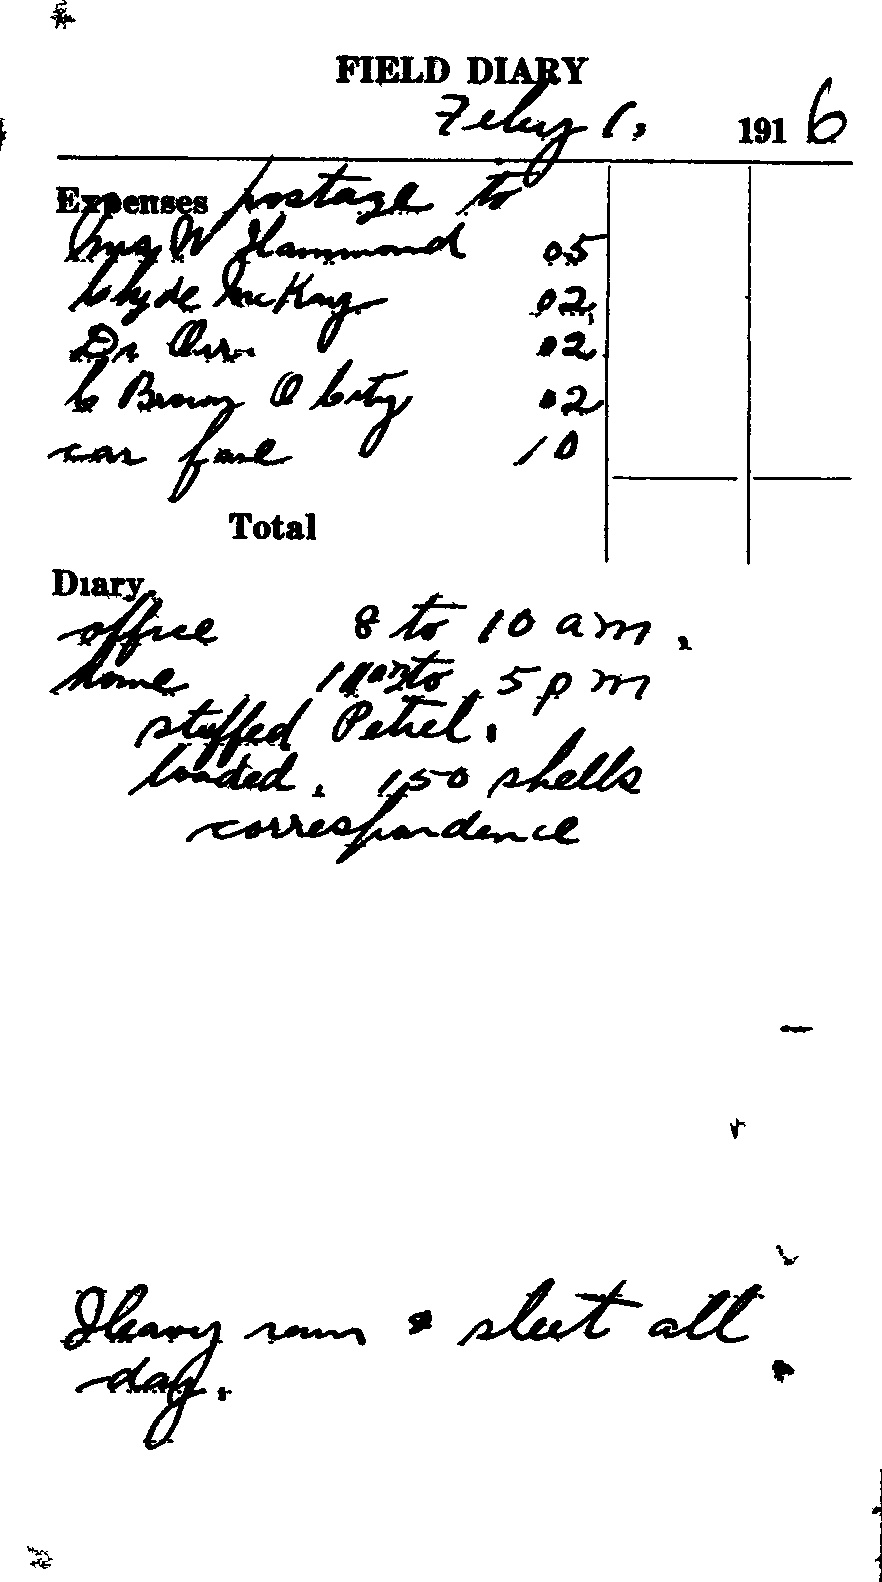 FIELD DIARY
Feby 1, 1916
Expenses postage to
Mrs W Hammond 05
Clyde McKay 02
Dr Orr 02
C Brown O City 02
car fare 10
Total
Diary
office 8 to 10 a m.
home to 5 p m
stuffed Petrel.
loaded. 150 shells
correspondence
Heavy rain & sleet all
day.